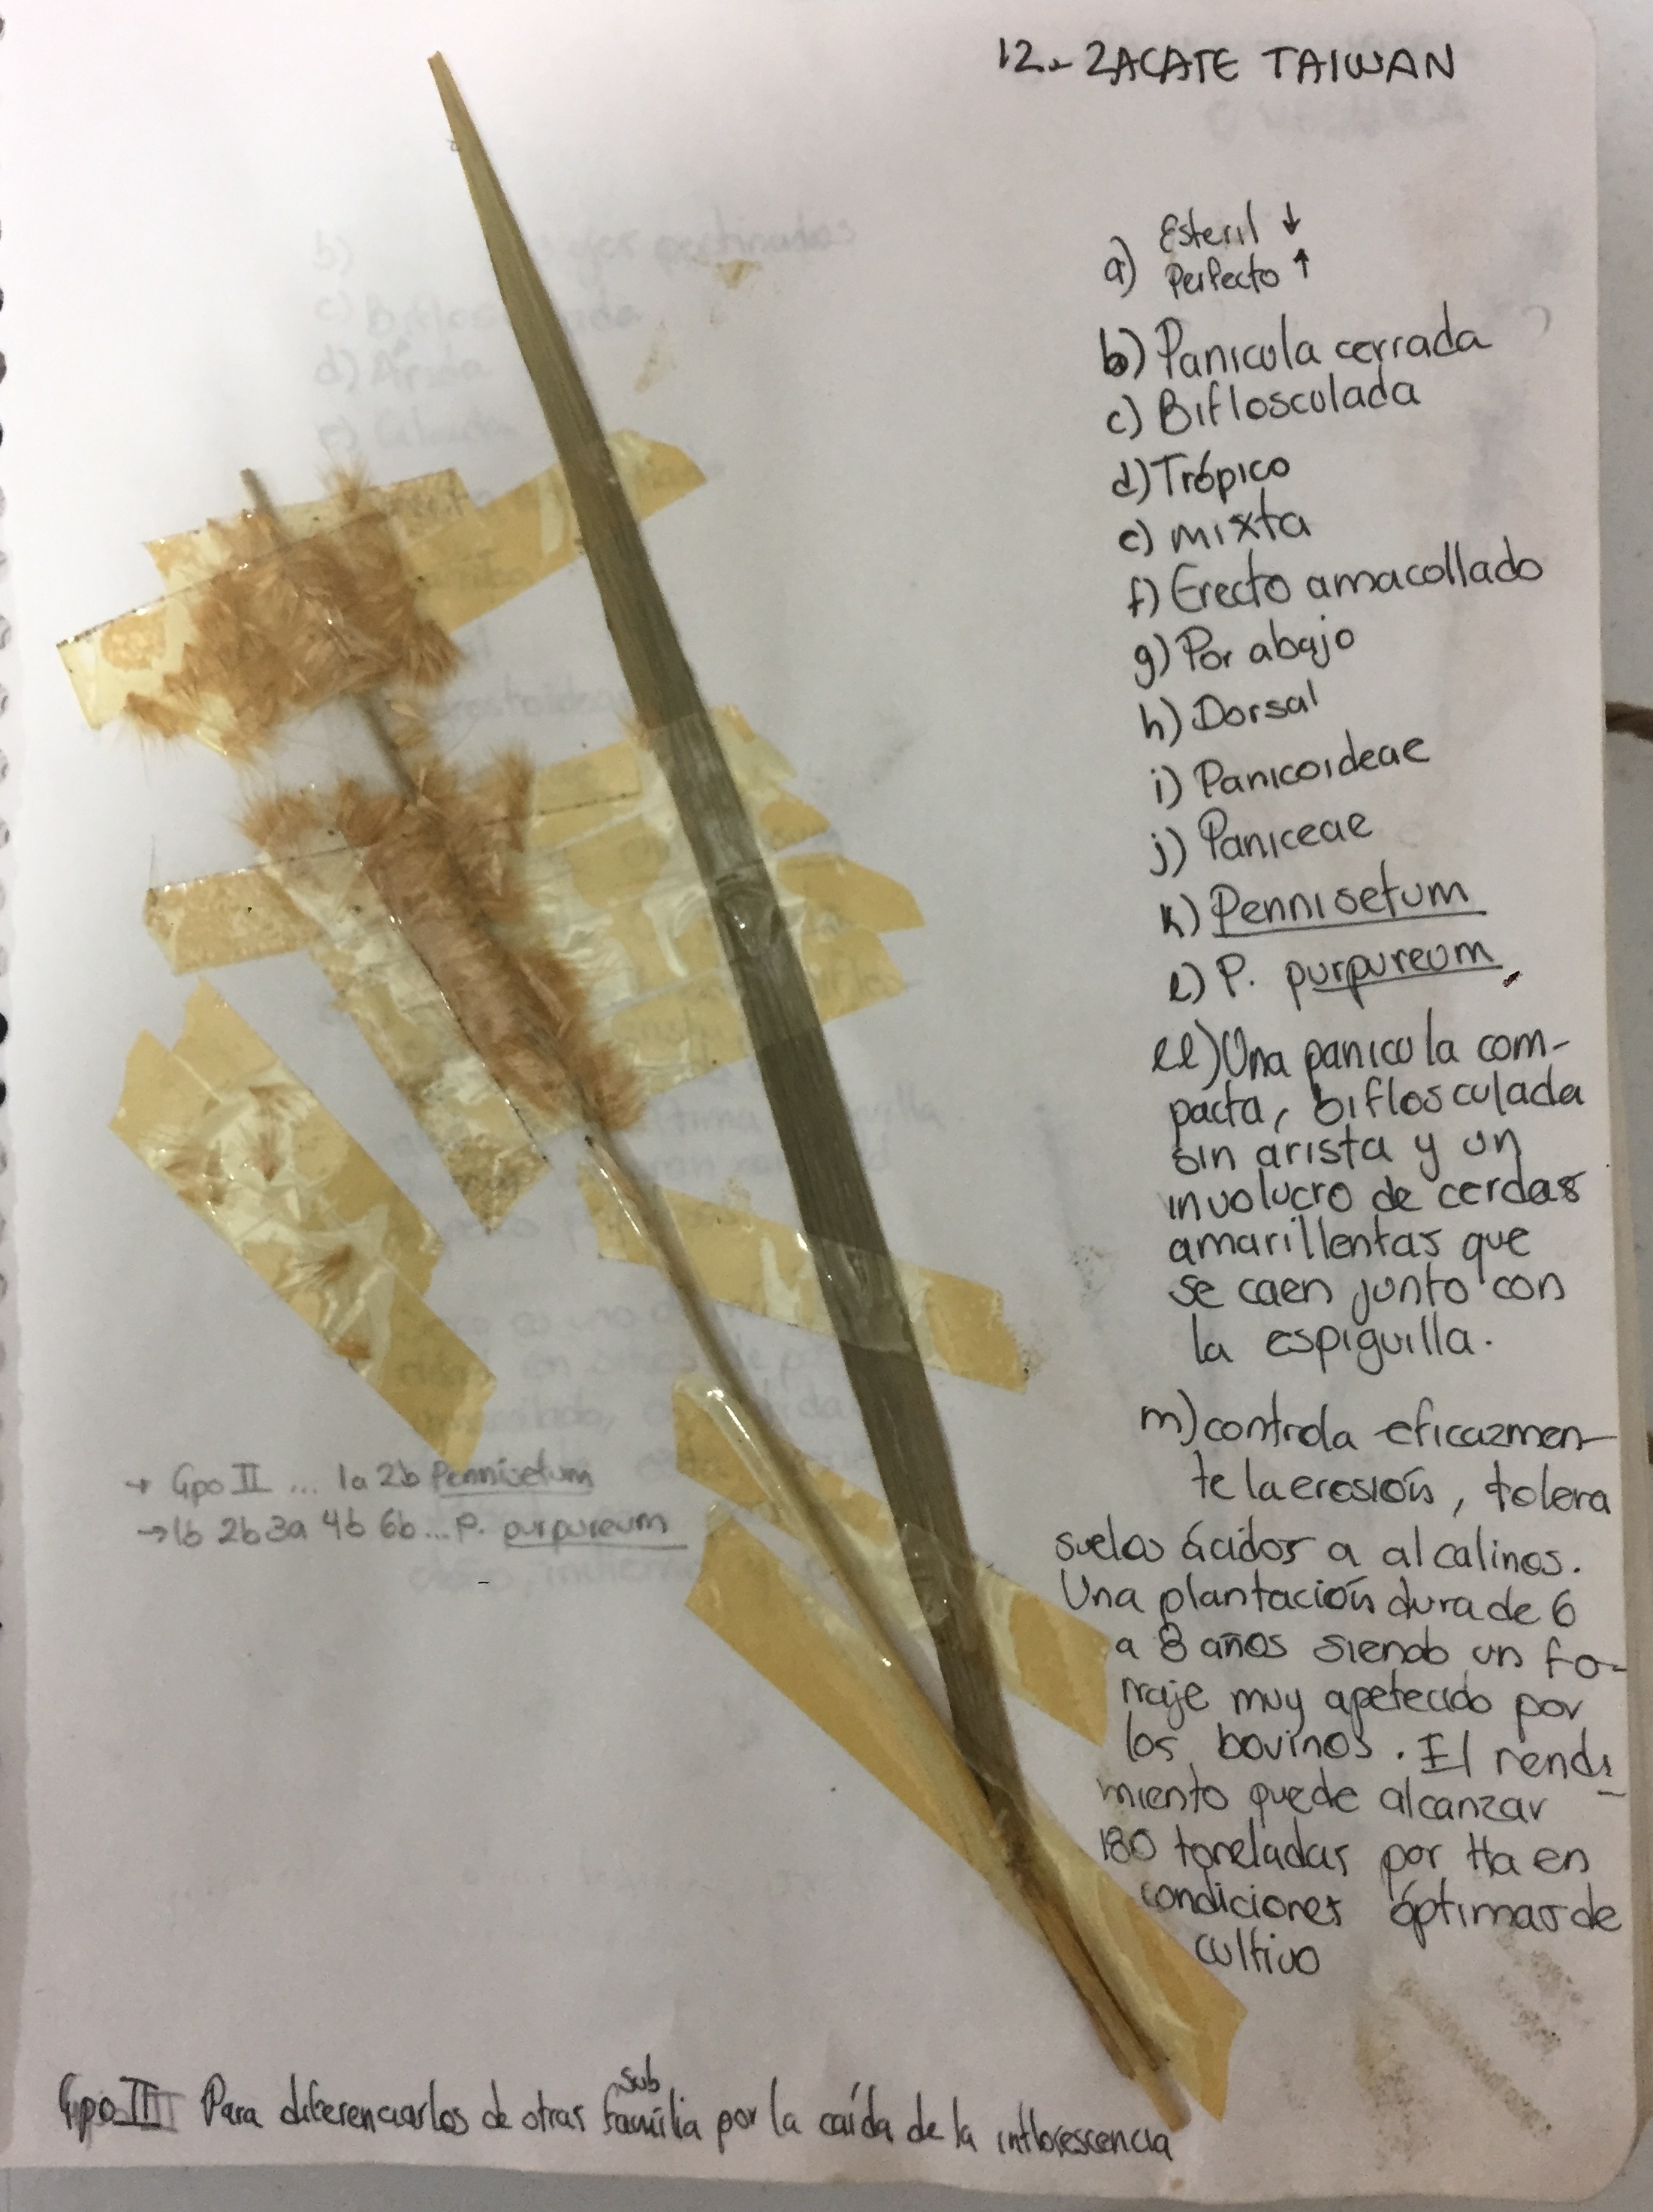 12.- ZACATE TAIWAN
a) Esteril ↓
Perfecto ↑
b) Panicula cerrada
c) Biflosculada
d) Trópico
e) mixta
f) Erecto amacollado
g) Por abajo
h) Dorsal
i) Panicoideae
j) Paniceae
k) Pennisetum
l) P. purpureum
ll) Una panicula com-
pacta, biflosculada
sin arista y un
involucro de cerdas
amarillentas que
se caen junto con
la espiguilla.
m) controla eficazmen-
te la erosión, tolera
suelos ácidos a alcalinos.
Una plantación dura de 6
a 8 años siendo un fo-
rraje muy apetecido por
los bovinos. El rendi-
miento puede alcanzar
180 toneladas por Ha en
condiciones óptimas de
cultivo
→ Gpo II ... 1a 2b Pennisetum
→ 1b 2b 3a 4b 6b ... P. purpureum
Gpo II Para diferenciarlos de otras sub familia por la caída de la inflorescencia